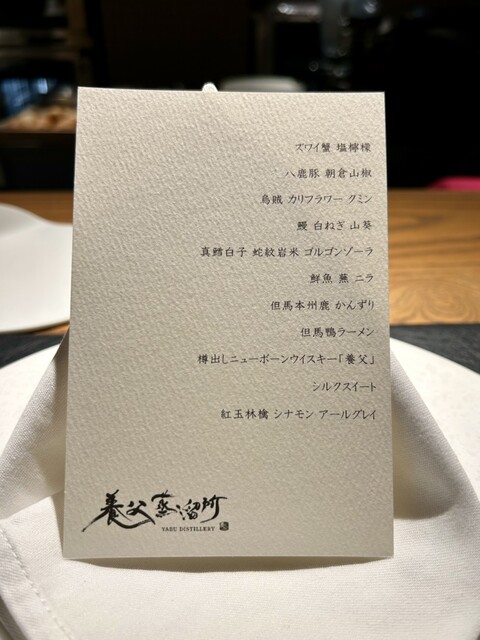 ズワイ蟹 塩檸檬
八鹿豚 朝倉山椒
烏賊 カリフラワー クミン
鰻 白ねぎ 山葵
真鱈白子 蛇紋岩米 ゴルゴンゾーラ
鮮魚 蕪 ニラ
但馬本州鹿 かんずり
但馬鴨ラーメン
樽出しニューボーンウイスキー「養父」
シルクスイート
紅玉林檎 シナモン アールグレイ
養父蒸溜所
YABU DISTILLERY